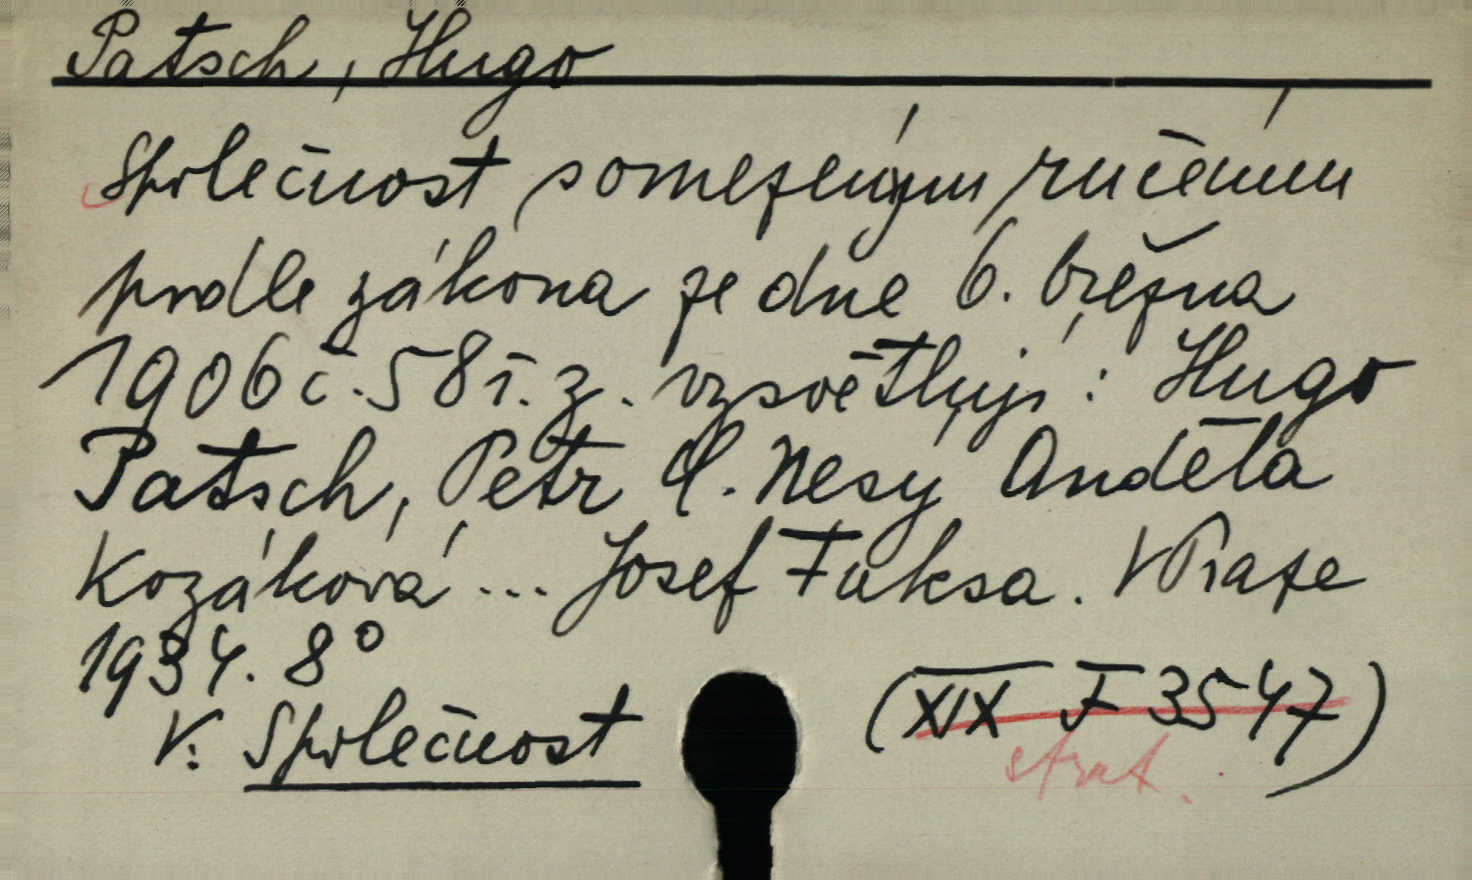 Patsch, Hugo
Společnost s omezeným ručením
podle zákona ze dne 6. března
1906 č. 58 ř. z. vysvětlují: Hugo
Patsch, Petr Q. Nesý Anděla
Kozáková ... Josef Fuksa. V Praze
1934. 8°
V: Společnost
(XIX F 3547)
strat.